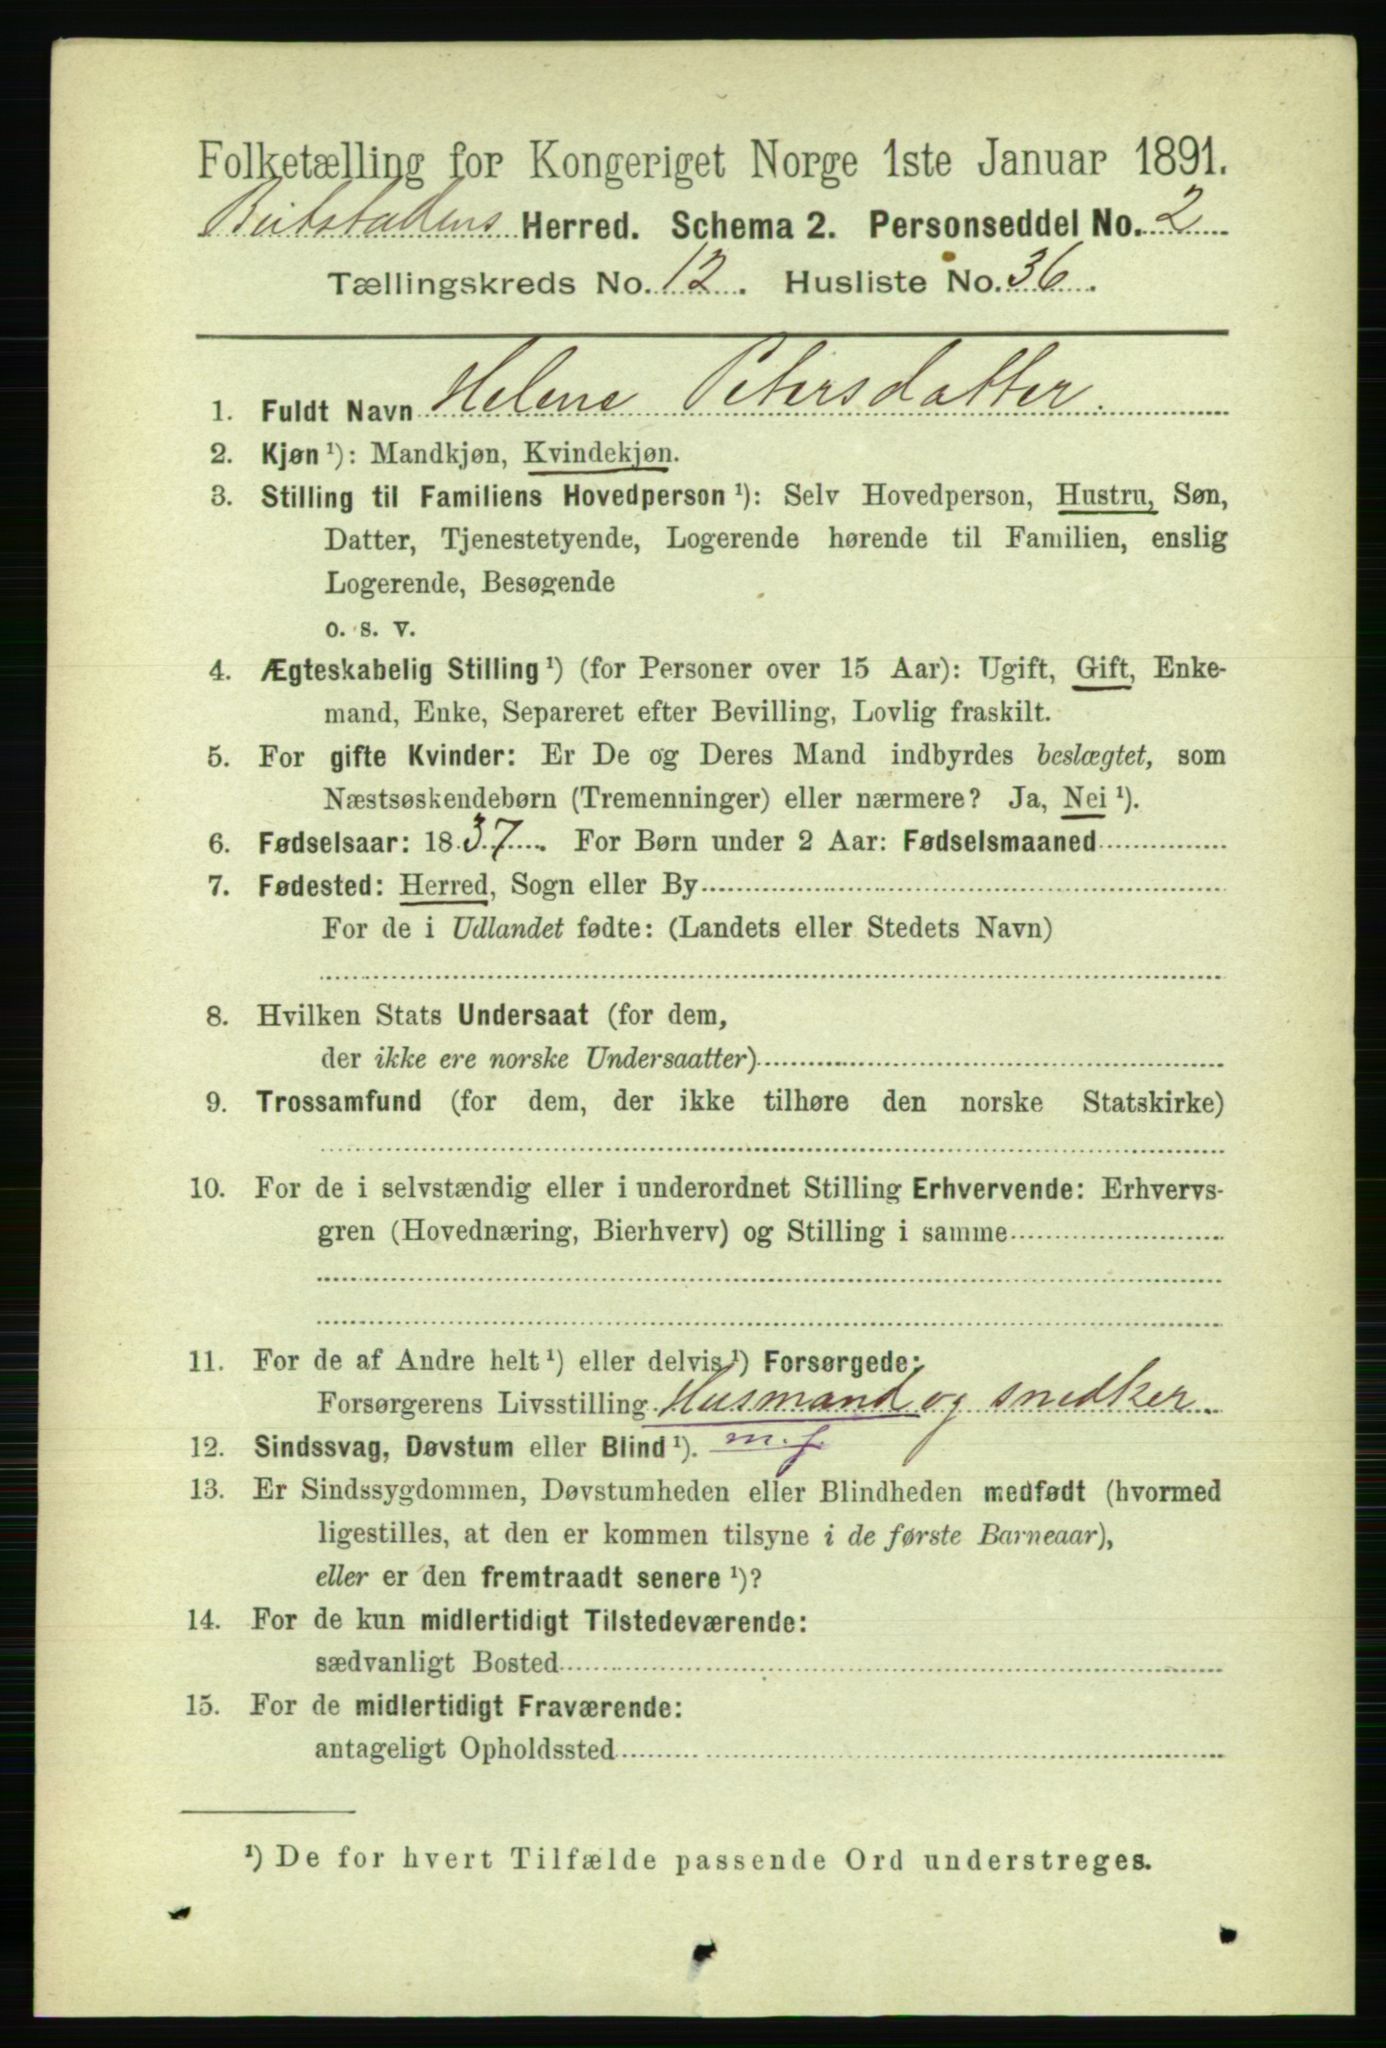 Folketælling for Kongeriget Norge 1ste Januar 1891.
Beitstadens Herred. Schema 2. Personseddel No. 2
Tællingskreds No. 12. Husliste No. 36.
1. Fuldt Navn Helene Petersdatter.
2. Kjøn ¹): Mandkjøn, Kvindekjøn.
3. Stilling til Familiens Hovedperson ¹): Selv Hovedperson, Hustru, Søn,
Datter, Tjenestetyende, Logerende hørende til Familien, enslig
Logerende, Besøgende
o. s. v.
4. Ægteskabelig Stilling ¹) (for Personer over 15 Aar): Ugift, Gift, Enke-
mand, Enke, Separeret efter Bevilling, Lovlig fraskilt.
5. For gifte Kvinder: Er De og Deres Mand indbyrdes beslægtet, som
Næstsøskendebørn (Tremenninger) eller nærmere? Ja, Nei ¹).
6. Fødselsaar: 1837. For Børn under 2 Aar: Fødselsmaaned
7. Fødested: Herred, Sogn eller By
For de i Udlandet fødte: (Landets eller Stedets Navn)
8. Hvilken Stats Undersaat (for dem,
der ikke ere norske Undersaatter)
9. Trossamfund (for dem, der ikke tilhøre den norske Statskirke)
10. For de i selvstændig eller i underordnet Stilling Erhvervende: Erhvervs-
gren (Hovednæring, Bierhverv) og Stilling i samme
11. For de af Andre helt ¹) eller delvis ¹) Forsørgede:
Forsørgerens Livsstilling Husmand og snedker
12. Sindssvag, Døvstum eller Blind ¹). m. f.
13. Er Sindssygdommen, Døvstumheden eller Blindheden medfødt (hvormed
ligestilles, at den er kommen tilsyne i de første Barneaar),
eller er den fremtraadt senere ¹)?
14. For de kun midlertidigt Tilstedeværende:
sædvanligt Bosted
15. For de midlertidigt Fraværende:
antageligt Opholdssted
¹) De for hvert Tilfælde passende Ord understreges.